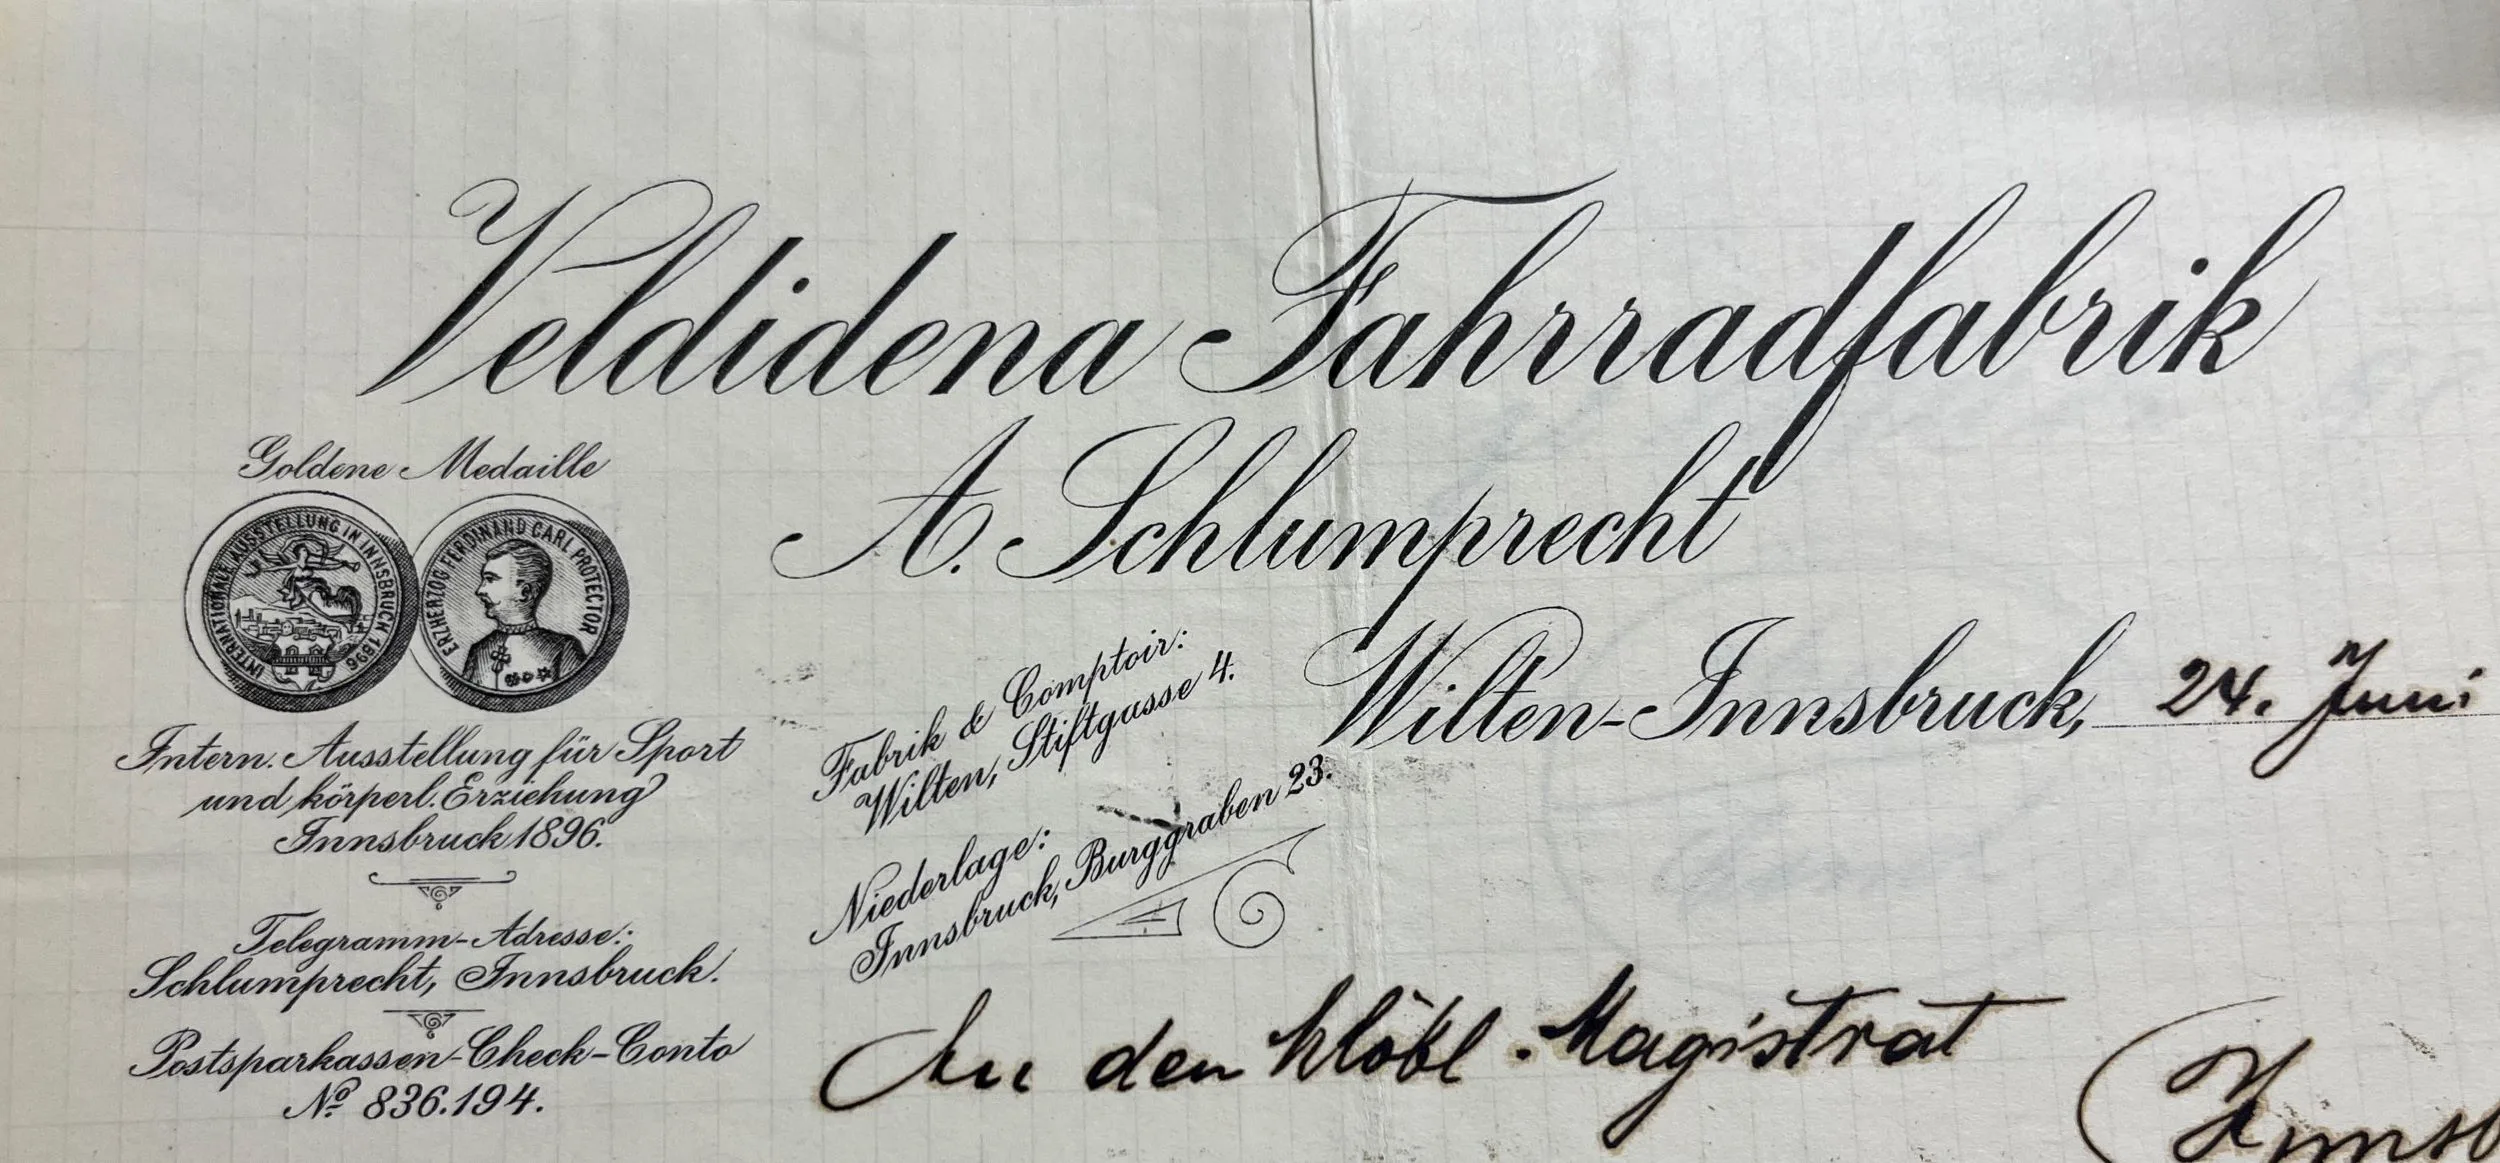 Veldidena Fahrradfabrik
A. Schlumprecht
Wilten-Innsbruck, 24. Juni
Goldene Medaille
INTERNATIONALE AUSSTELLUNG IN INNSBRUCK 1896
ERZHERZOG FERDINAND CARL PROTECTOR
Intern. Ausstellung für Sport
und körperl. Erziehung
Innsbruck 1896.
Telegramm-Adresse:
Schlumprecht, Innsbruck.
Postsparkassen-Check-Conto
No. 836.194.
Fabrik & Comptoir:
Wilten, Stiftgasse 4.
Niederlage:
Innsbruck, Burggraben 23.
An den löbl. Magistrat